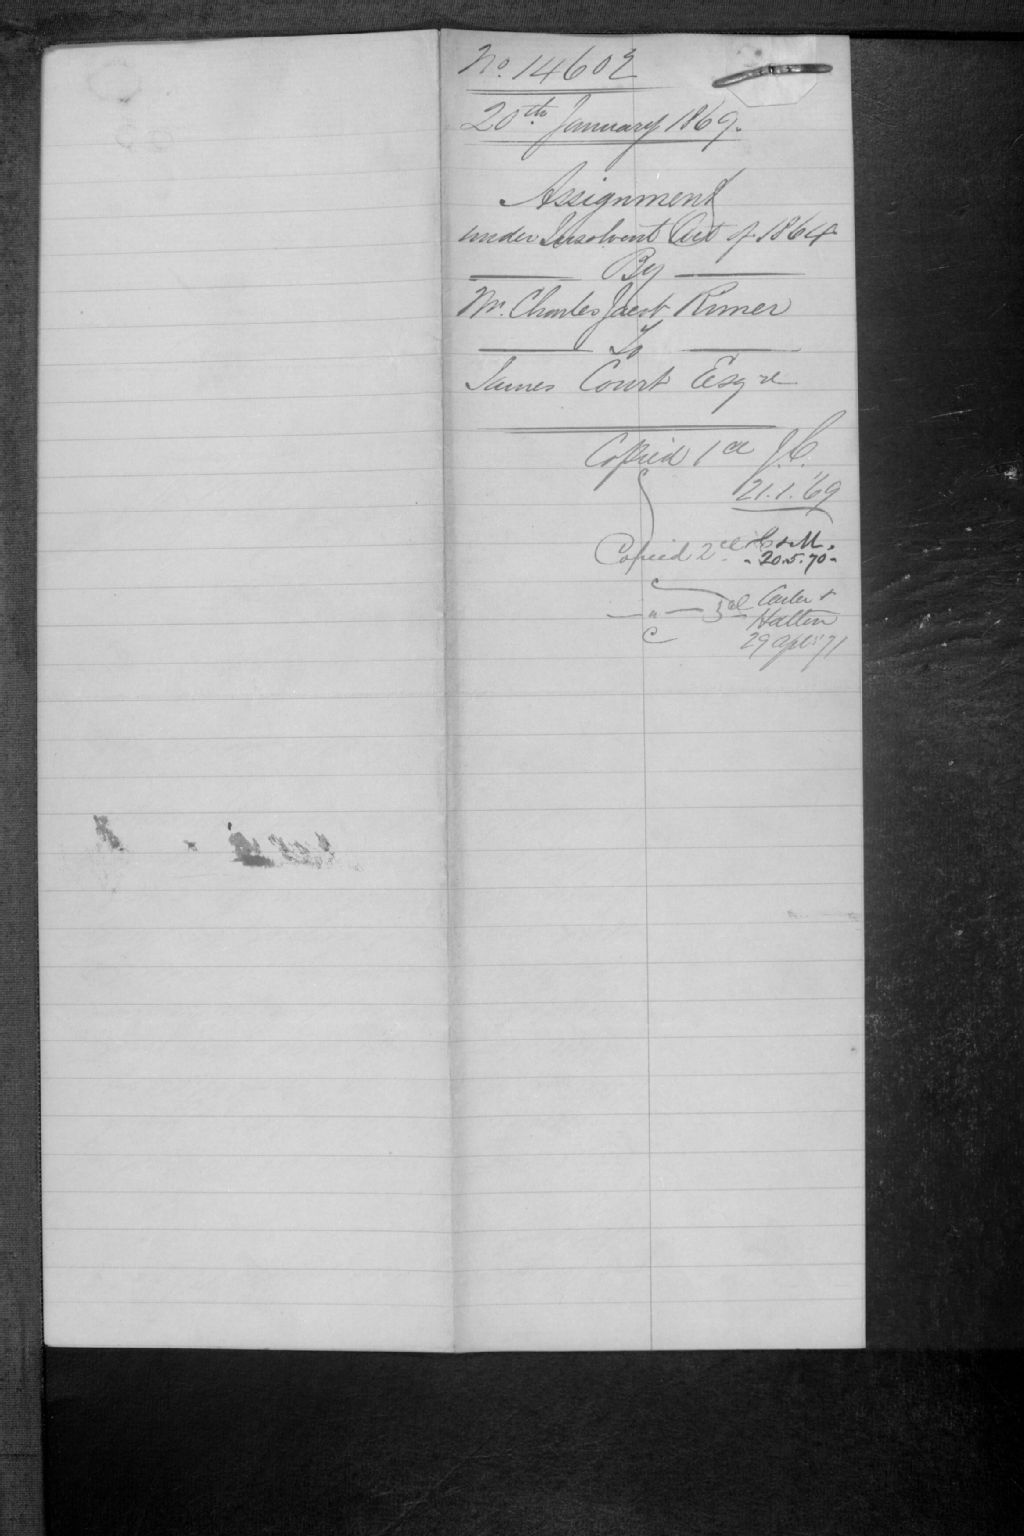 No. 14602
20th January 1869.
Assignment
under Insolvent Act of 1864
By
Mr. Charles Jacob Rimer
To
James Court Esqre
Copied 1 ce J.C.
21.1.'69
Copied 2ce H & M.
- 20.5.70 -
— " — 3ce Carter &
Hatton
29 Apl '71